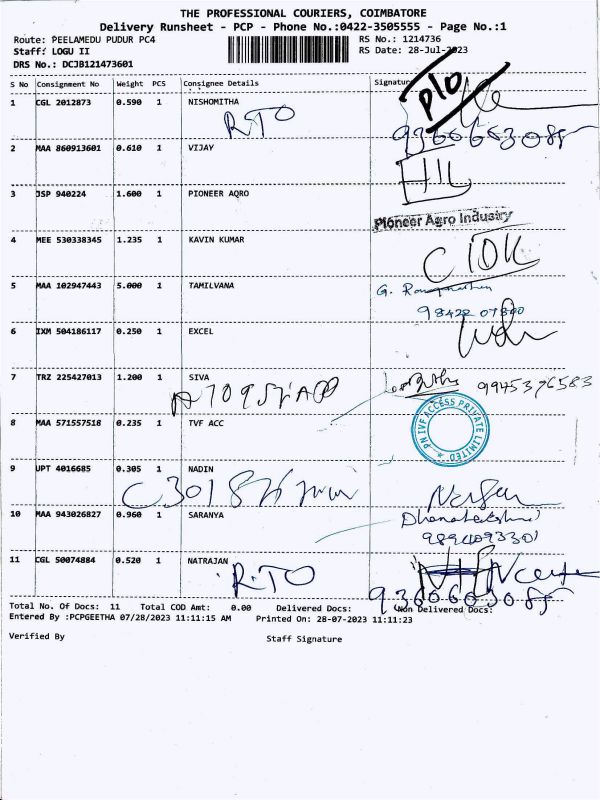 THE PROFESSIONAL COURIERS, COIMBATORE
Delivery Runsheet - PCP - Phone No.:0422-3505555 - Page No.:1
Route: PEELAMEDU PUDUR PC4 RS No.: 1214736
Staff: LOGU II RS Date: 28-Jul-2023
DRS No.: DCJB121473601
S No Consignment No Weight PCS Consignee Details Signature
1 CGL 2012873 0.590 1 NISHOMITHA
RTO
2 MAA 860913601 0.610 1 VIJAY
3 JSP 940224 1.600 1 PIONEER AQRO
Pioneer Agro Industry
4 MEE 530338345 1.235 1 KAVIN KUMAR
5 MAA 102947443 5.000 1 TAMILVANA
G.
6 IXM 504186117 0.250 1 EXCEL
7 TRZ 225427013 1.200 1 SIVA
9945376583
8 MAA 571557518 0.235 1 TVF ACC
PN IVF ACCESS PRIVATE LIMITED
9 UPT 4016685 0.305 1 NADIN
10 MAA 943026827 0.960 1 SARANYA
9894093301
11 CGL 50074884 0.520 1 NATRAJAN
R.TO
Total No. Of Docs: 11 Total COD Amt: 0.00 Delivered Docs: Non Delivered Docs:
Entered By :PCPGEETHA 07/28/2023 11:11:15 AM Printed On: 28-07-2023 11:11:23
Verified By Staff Signature